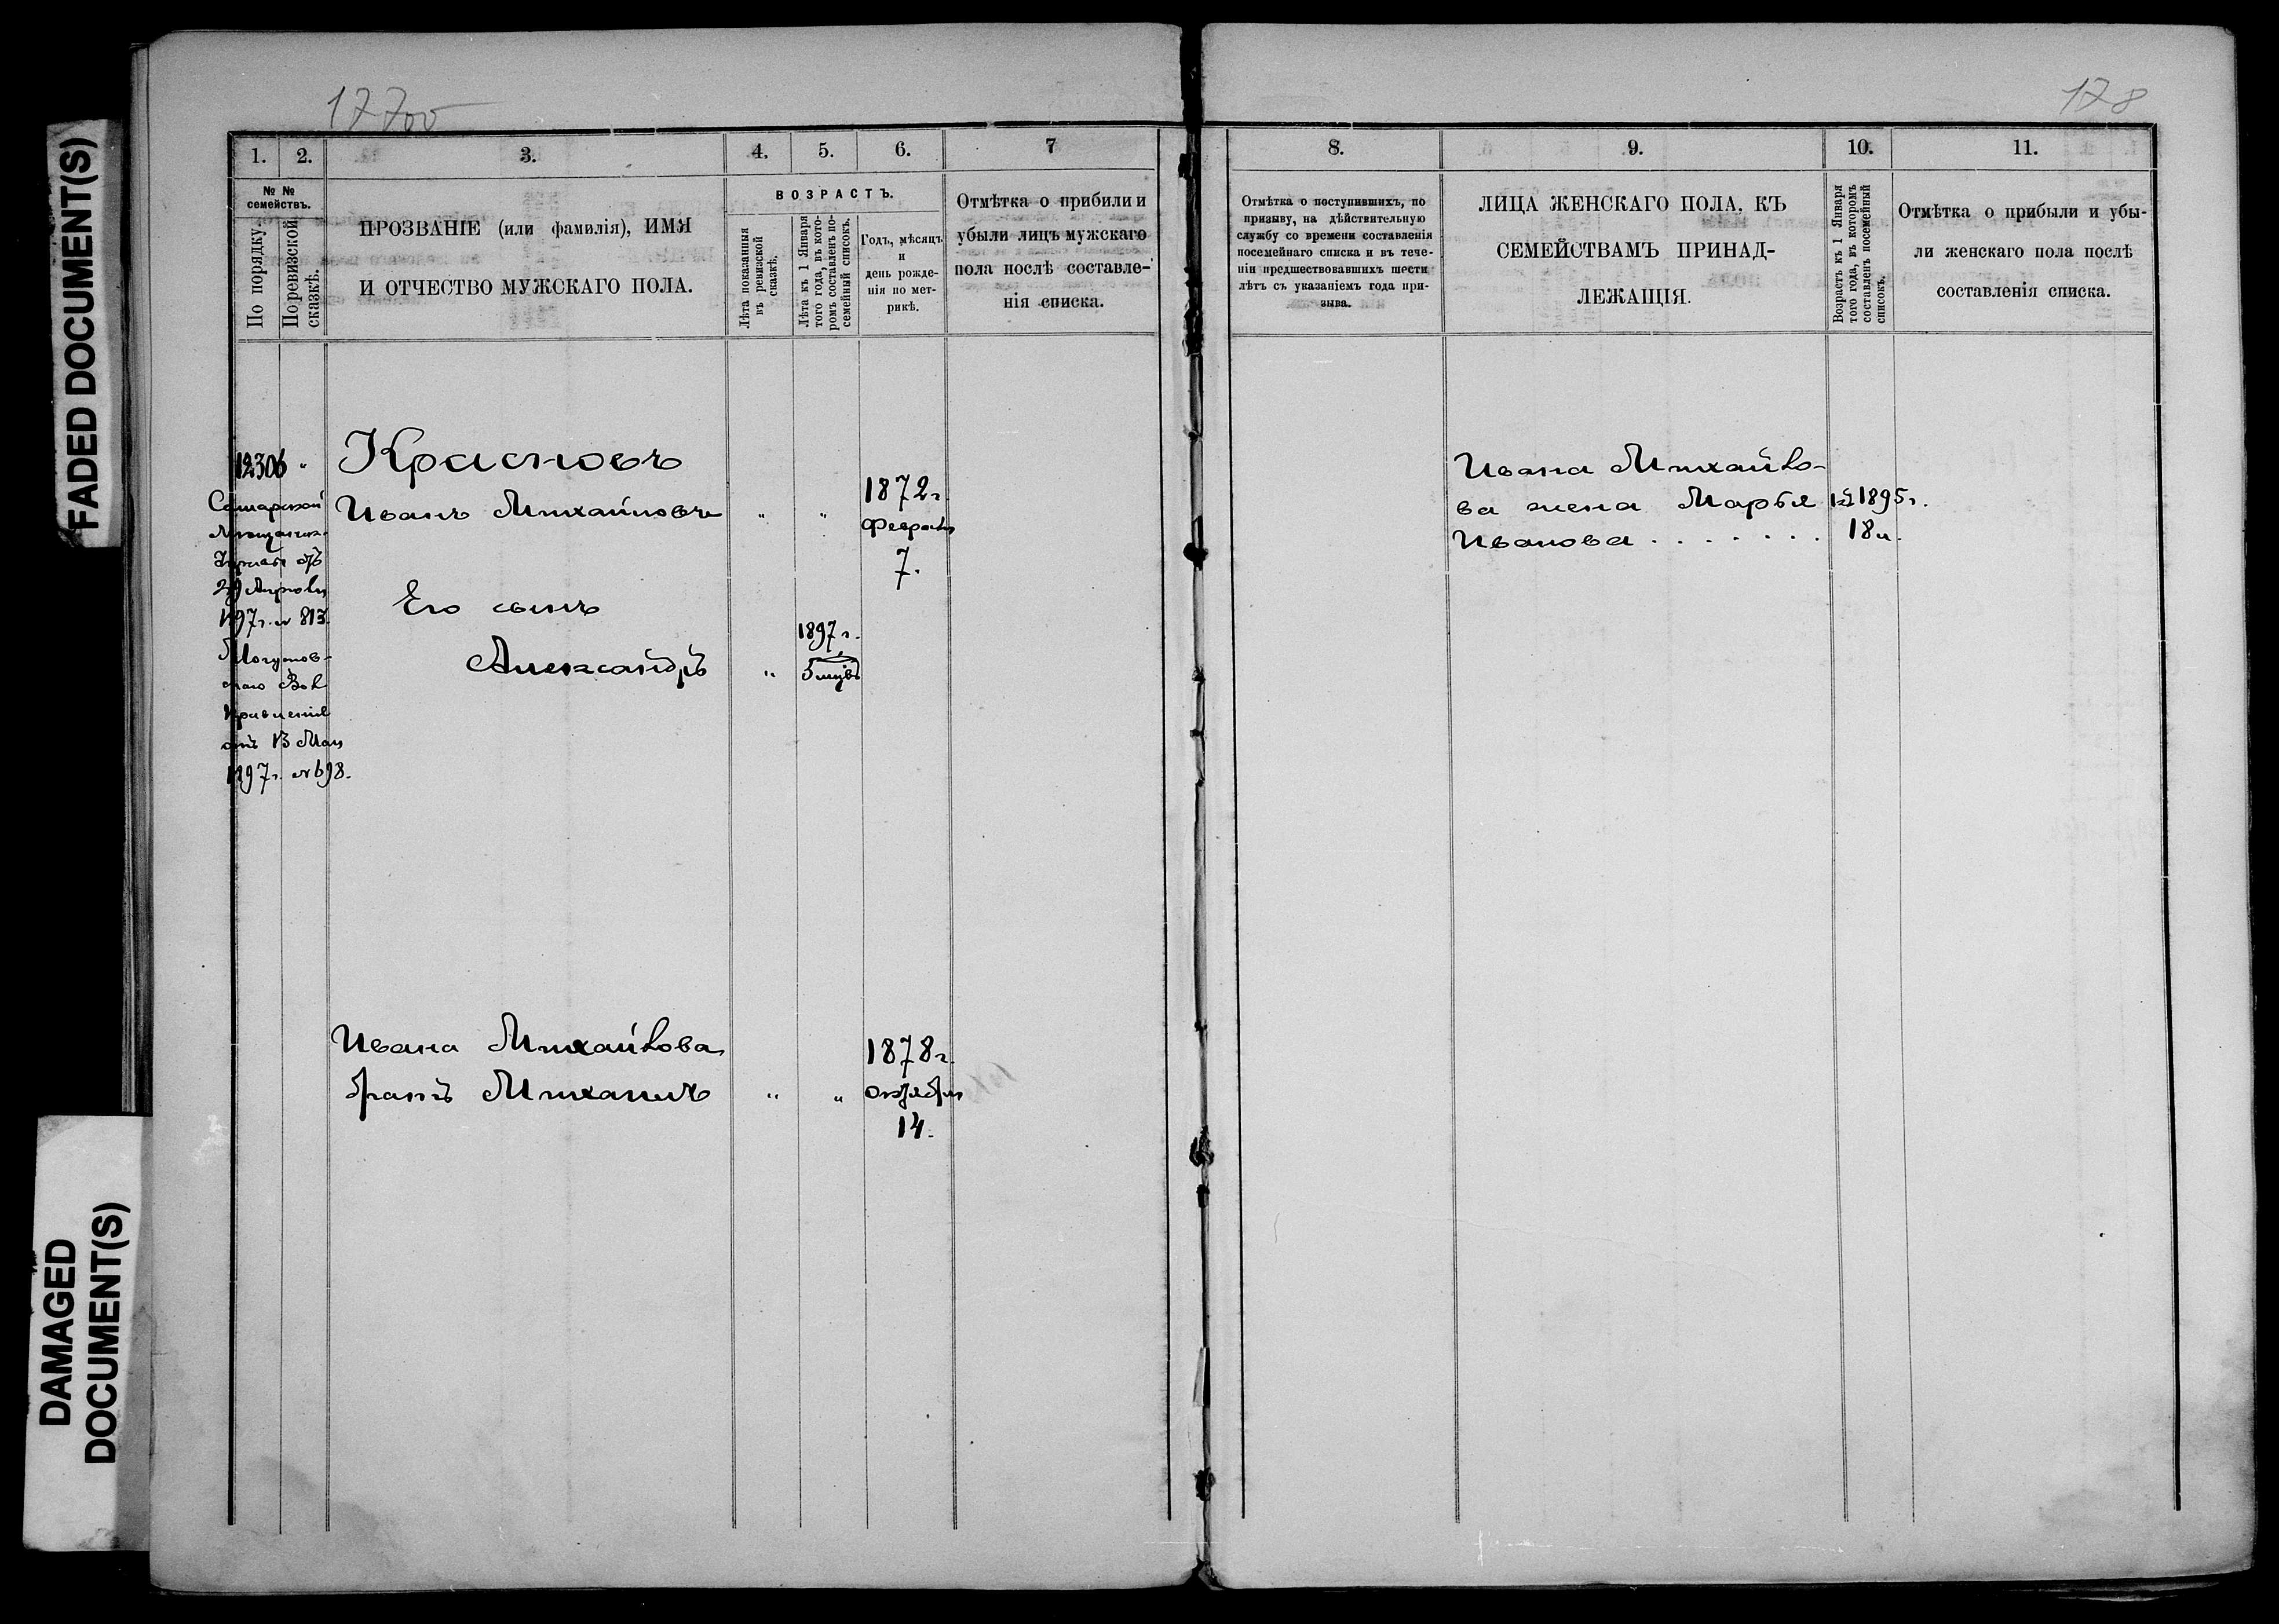 FADED DOCUMENT(S)
DAMAGED
DOCUMENT(S)
177об
1. 2. 3. 4. 5. 6. 7
№ №
семействъ.
По порядку.
По ревизской
сказкѣ.
ПРОЗВАНІЕ (или фамилія), ИМЯ
И ОТЧЕСТВО МУЖСКАГО ПОЛА.
ВОЗРАСТЪ.
Лѣта показанныя
въ ревизской
сказкѣ.
Лѣта къ 1 Января
того года, въ кото-
ромъ составленъ по-
семейный списокъ.
Годъ, мѣсяцъ
и
день рожде-
нія по мет-
рикѣ.
Отмѣтка о прибыли и
убыли лицъ мужскаго
пола послѣ составле-
нія списка.
12306 " Красновъ
Иванъ Михайловъ " " 1872 г.
Февраля
7.
Самарской
Мещанск.
Управы отъ
29 Апрѣля
1897 г. № 813.
Могутов-
скаго Вол
Правленія
отъ 13 Мая
1897 г. № 698.
Его сынъ
Александръ " 1897 г.
5 мцвъ
Ивана Михайлова
братъ Михаилъ " " 1878 г.
октября
14.
178
8. 9. 10. 11.
Отмѣтка о поступившихъ, по
призыву, на дѣйствительную
службу со времени составленія
посемейнаго списка и въ тече-
ніи предшествовавшихъ шести
лѣтъ съ указаніемъ года при-
зыва.
ЛИЦА ЖЕНСКАГО ПОЛА, КЪ
СЕМЕЙСТВАМЪ ПРИНАД-
ЛЕЖАЩІЯ.
Возрастъ къ 1 Января
того года, въ которомъ
составленъ посемейный
списокъ.
Отмѣтка о прибыли и убы-
ли женскаго пола послѣ
составленія списка.
Ивана Михайло-
ва жена Марья 1895 г.
Иванова . . . . . . . 18 л.